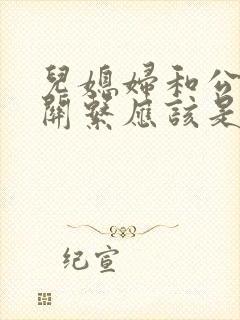 兒媳婦和公
關繫應該是
纪宣